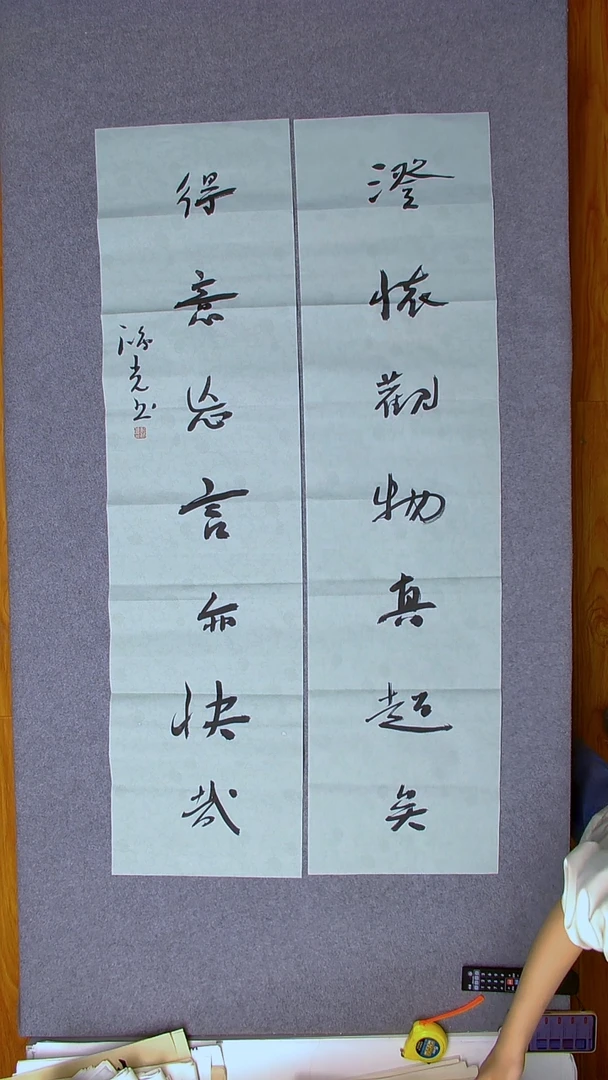 澄懷觀物真超矣
得意忘言亦快哉
光书